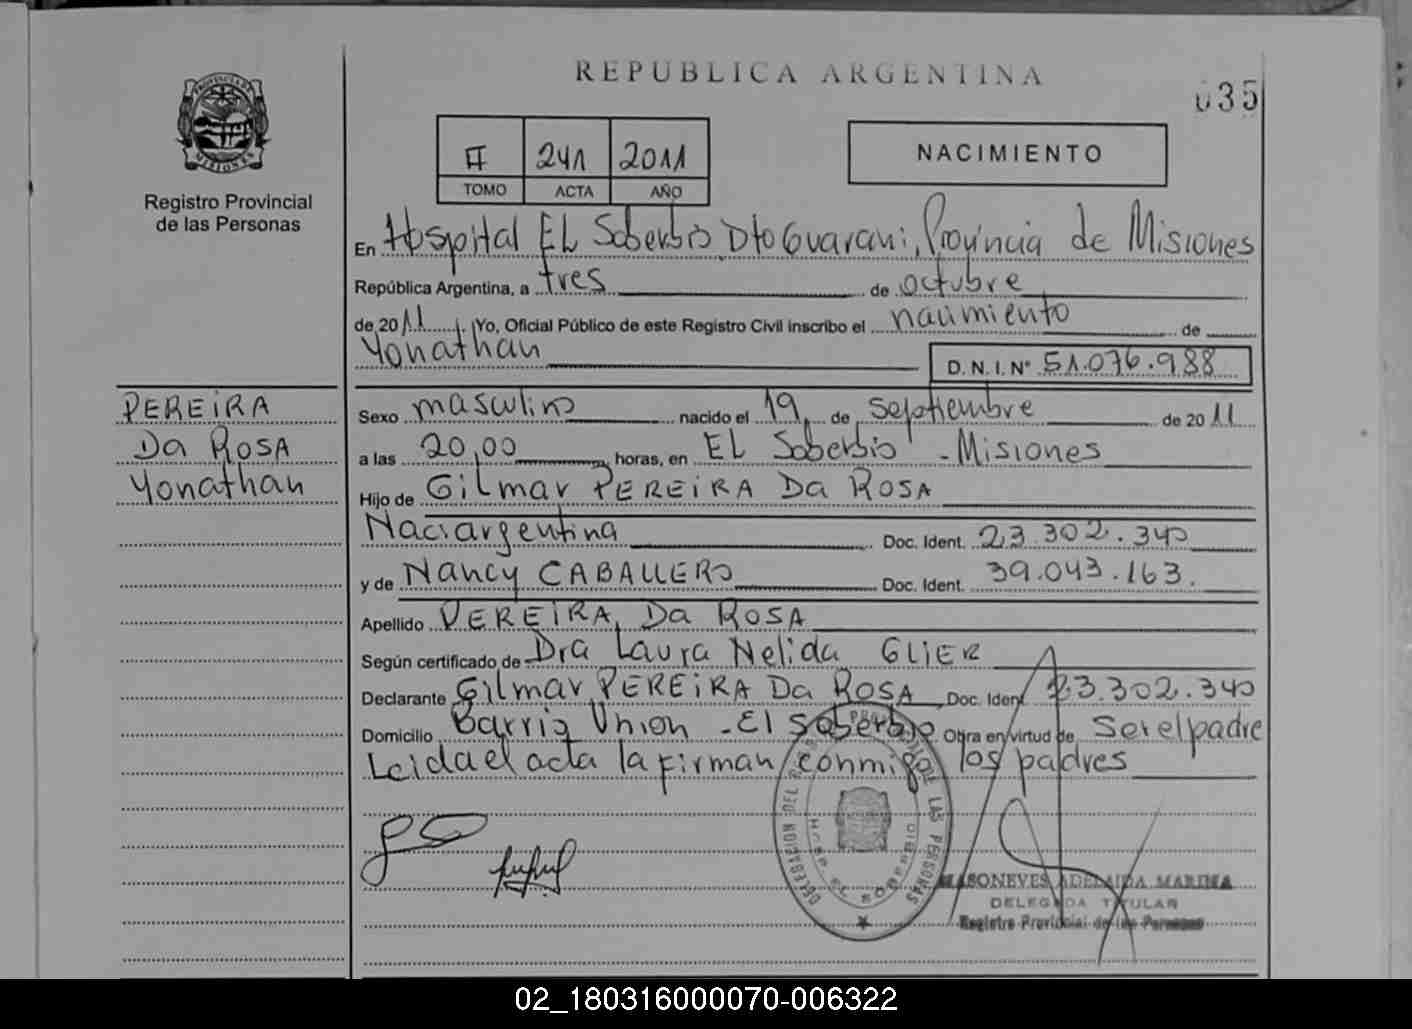 REPUBLICA ARGENTINA
035
PROVINCIA DE MISIONES
Registro Provincial
de las Personas
II 241 2011
TOMO ACTA AÑO
NACIMIENTO
En Hospital EL Soberbio Dto Guarani, Provincia de Misiones
República Argentina, a tres de octubre
de 2011. Yo, Oficial Público de este Registro Civil inscribo el nacimiento de
Yonathan
D.N.I. Nº 51.076.988
PEREIRA
Da ROSA
Yonathan
Sexo masculino nacido el 19 de septiembre de 2011
a las 20,00 horas, en EL Soberbio - Misiones
Hijo de Gilmar PEREIRA Da ROSA
Nac. argentina Doc. Ident. 23.302.340
y de Nancy CABALLERO Doc. Ident. 39.043.163.
Apellido PEREIRA Da ROSA
Según certificado de Dra Laura Nelida GLIER
Declarante Gilmar PEREIRA Da ROSA Doc. Ident 23.302.340
Domicilio Barrio Union - El Soberbio Obra en virtud de Ser el padre
Leida el acta la firman conmigo los padres
DELEGACION DEL REGISTRO PROVINCIAL DE LAS PERSONAS
HOSP. EL SOBERBIO
MASONEVES ADELAIDA MARINA
DELEGADA TITULAR
Registro Provincial de las Personas
02_180316000070-006322